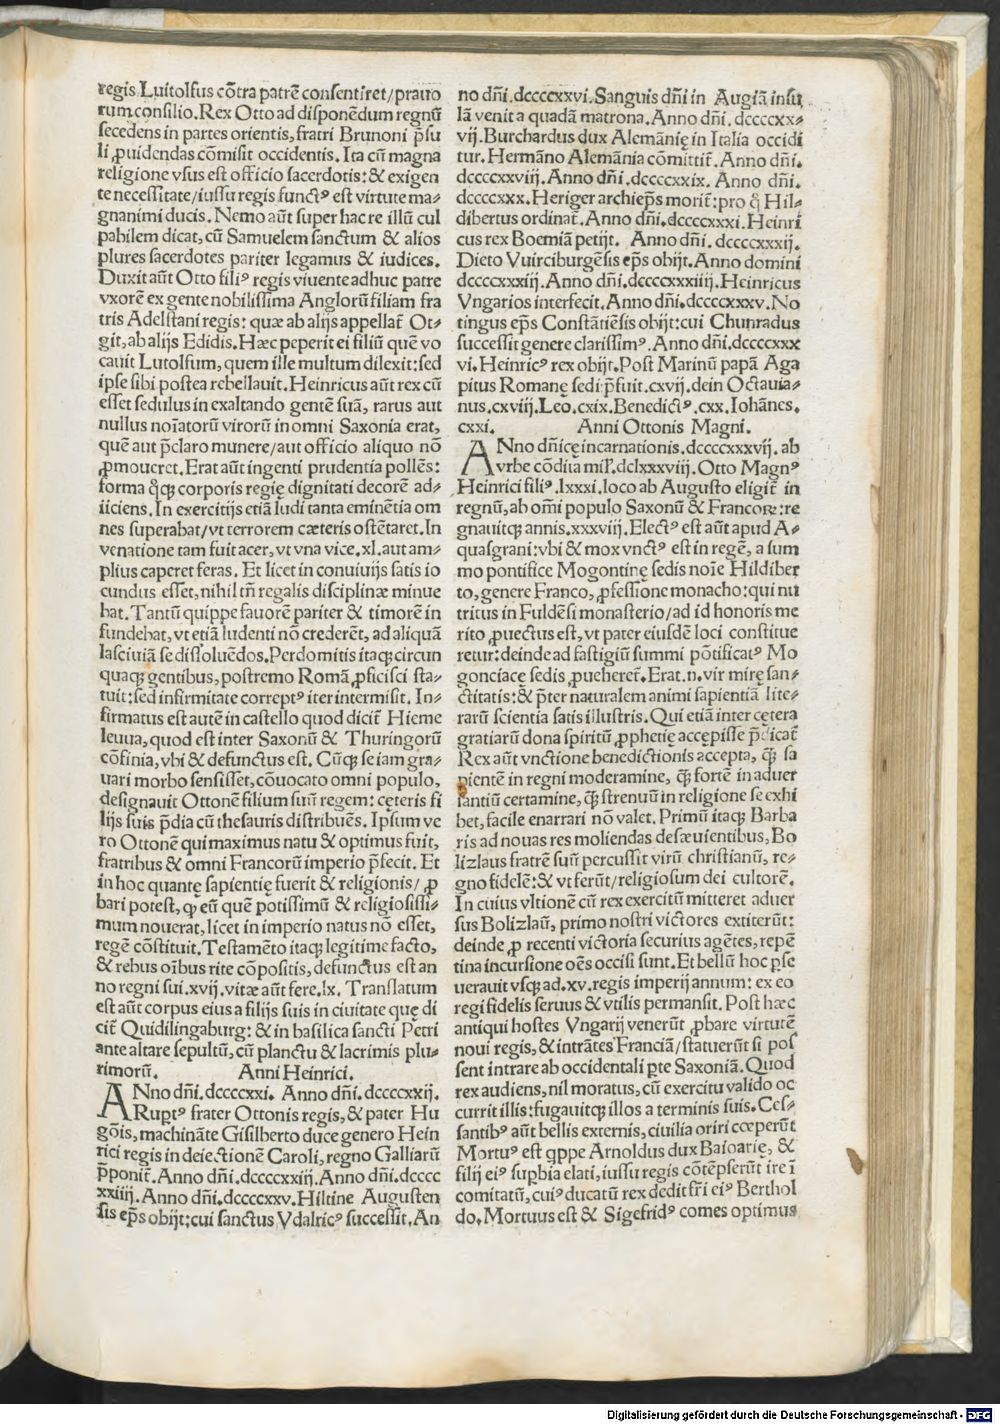 regis Luitolfus cõtra patrẽ consentiret/prauo
rum consilio. Rex Otto ad disponẽdum regnũ
secedens in partes orientis, fratri Brunoni p̃su
li ꝓuidendas cõmisit occidentis. Ita cũ magna
religione vsus est officio sacerdotis: & exigen
te necessitate/iussu regis functꝰ est virtute ma⸗
gnanimi ducis. Nemo aũt super hac re illũ cul
pabilem dicat, cũ Samuelem sanctum & alios
plures sacerdotes pariter legamus & iudices.
Duxit aũt Otto filiꝰ regis viuente adhuc patre
vxorẽ ex gente nobilissima Anglorũ filiam fra
tris Adelstani regis: quæ ab alijs appellat̃ Ot⸗
git, ab alijs Edidis. Hæc peperit ei filiũ quẽ vo
cauit Lutolfum, quem ille multum dilexit: sed
ipse sibi postea rebellauit. Heinricus aũt rex cũ
esset sedulus in exaltando gentẽ suã, rarus aut
nullus noĩatorũ virorũ in omni Saxonia erat,
quẽ aut p̃claro munere/aut officio aliquo nõ
ꝓmoueret. Erat aũt ingenti prudentia pollẽs:
forma q̃ꝗ corporis regię dignitati decorẽ ad⸗
iiciens. In exercitijs etiã ludi tanta eminẽtia om
nes superabat/vt terrorem cæteris ostẽtaret. In
venatione tam fuit acer, vt vna vice .xl. aut am⸗
plius caperet feras. Et licet in conuiuijs satis io
cundus esset, nihil tñ regalis disciplinæ minue
bat. Tantũ quippe fauorẽ pariter & timorẽ in
fundebat, vt etiã ludenti nõ crederẽt, ad aliquã
lasciuiã se dissoluẽdos. Perdomitis itaꝗ circun
quaꝗ gentibus, postremo Romã ꝓficisci sta⸗
tuit: sed infirmitate correptꝰ iter intermisit. In⸗
firmatus est autẽ in castello quod dicit̃ Hieme
leuua, quod est inter Saxonũ & Thuringorũ
cõfinia, vbi & defunctus est. Cũꝗ se iam gra⸗
uari morbo sensisset, cõuocato omni populo,
designauit Ottonẽ filium suũ regem: cęteris fi
lijs suis p̃dia cũ thesauris distribuẽs. Ipsum ve
ro Ottonẽ qui maximus natu & optimus fuit,
fratribus & omni Francorũ imperio p̃fecit. Et
in hoc quantę sapientię fuerit & religionis/ ꝓ
bari potest, ꝙ eũ quẽ potissimũ & religiosissi⸗
mum nouerat, licet in imperio natus nõ esset,
regẽ cõstituit. Testamẽto itaꝗ legitime facto,
& rebus oĩbus rite cõpositis, defunctus est an
no regni sui .xvij. vitæ aũt fere .lx. Translatum
est aũt corpus eius a filijs suis in ciuitate quę di
cit̃ Quidilingaburg: & in basilica sancti Petri
ante altare sepultũ, cũ planctu & lacrimis plu⸗
rimorũ. Anni Heinrici.
ANno dñi .dccccxxi. Anno dñi .dccccxxij.
Ruptꝰ frater Ottonis regis, & pater Hu
gõis, machinãte Gisilberto duce genero Hein
rici regis in deiectionẽ Caroli, regno Galliarũ
p̃ponit̃. Anno dñi .dccccxxiij. Anno dñi .dcccc
xxiiij. Anno dñi .dccccxxv. Hiltine Augusten
sis ep̃s obijt: cui sanctus Vdalricꝰ successit. An
no dñi .dccccxxvi. Sanguis dñi in Augiã insu
lã venit a quadã matrona. Anno dñi .dccccxx⸗
vij. Burchardus dux Alemãnię in Italia occidi
tur. Hermãno Alemãnia cõmittit̃. Anno dñi .
dccccxxviij. Anno dñi .dccccxxix. Anno dñi .
dccccxxx. Heriger archiep̃s morit̃: pro q̃ Hil⸗
dibertus ordinat̃. Anno dñi .dccccxxxi. Heinri
cus rex Boemiã petijt. Anno dñi .dccccxxxij.
Dieto Vuirciburgẽsis ep̃s obijt. Anno domini
dccccxxxiij. Anno dñi .dccccxxxiiij. Heinricus
Vngarios interfecit. Anno dñi .dccccxxxv. No
tingus ep̃s Constãtiẽsis obijt: cui Chunradus
successit genere clarissimꝰ. Anno dñi .dccccxxx
vi. Heinricꝰ rex obijt. Post Marinũ papã Aga
pitus Romanę sedi p̃fuit .cxvij. dein Octauia⸗
nus .cxviij. Leo .cxix. Benedictꝰ .cxx. Iohãnes.
cxxi. Anni Ottonis Magni.
ANno dñicę incarnationis .dccccxxxvij. ab
vrbe cõdita mil̃.dclxxxviij. Otto Magnꝰ
Heinrici filiꝰ .lxxxi. loco ab Augusto eligit̃ in
regnũ, ab om̃i populo Saxonũ & Francoꝝ: re
gnauitꝗ annis .xxxviij. Electꝰ est aũt apud A⸗
quasgrani: vbi & mox vnctꝰ est in regẽ, a sum
mo pontifice Mogontinę sedis noĩe Hildiber
to, genere Franco, ꝓfessione monacho: qui nu
tritus in Fuldẽsi monasterio/ad id honoris me
rito ꝓuectus est, vt pater eiusdẽ loci constitue
retur: deinde ad fastigiũ summi põtificatꝰ Mo
gonciacę sedis ꝓueheret̃. Erat .n. vir mirę san⸗
ctitatis: & p̃ter naturalem animi sapientiã lite⸗
rarũ scientia satis illustris. Qui etiã inter cętera
gratiarũ dona spiritũ ꝓphetię accępisse p̃dicat̃
Rex aũt vnctione benedictionis accepta, ꝗ̃ sa
pientẽ in regni moderamine, ꝗ̃ fortẽ in aduer
santiũ certamine, ꝗ̃ strenuũ in religione se exhi
bet, facile enarrari nõ valet. Primũ itaꝗ Barba
ris ad nouas res moliendas desæuientibus, Bo
lizlaus fratrẽ suũ percussit virũ christianũ, re⸗
gno fidelẽ: & vt ferũt/religiosum dei cultorẽ.
In cuius vltionẽ cũ rex exercitũ mitteret aduer
sus Bolizlaũ, primo nostri victores extiterũt:
deinde ꝓ recenti victoria securius agẽtes, repẽ
tina incursione oẽs occisi sunt. Et bellũ hoc ꝑse
uerauit vsꝗ ad .xv. regis imperij annum: ex eo
regi fidelis seruus & vtilis permansit. Post hæc
antiqui hostes Vngarij venerũt ꝓbare virtutẽ
noui regis, & intrãtes Franciã/statuerũt si pos
sent intrare ab occidentali ꝑte Saxoniã. Quod
rex audiens, nil moratus, cũ exercitu valido oc
currit illis: fugauitꝗ illos a terminis suis. Ces⸗
santibꝰ aũt bellis externis, ciuilia oriri cœperũt
Mortuꝰ est q̃ppe Arnoldus dux Baioarię, &
filij eiꝰ suꝑbia elati, iussu regis cõtẽpserũt ire ĩ
comitatũ, cuiꝰ ducatũ rex dedit fr̃i eiꝰ Berthol
do. Mortuus est & Sigefridꝰ comes optimus
Digitalisierung gefördert durch die Deutsche Forschungsgemeinschaft - DFG